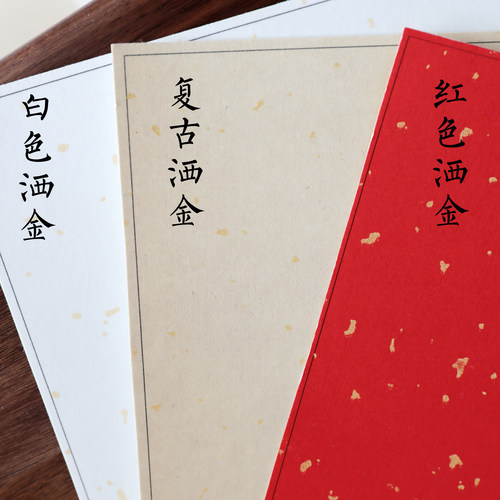 白色洒金
复古洒金
红色洒金